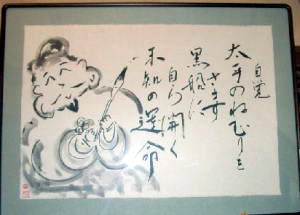 自覚
太平のねむりを
さます
黒船に
自ら開く
未知の運命